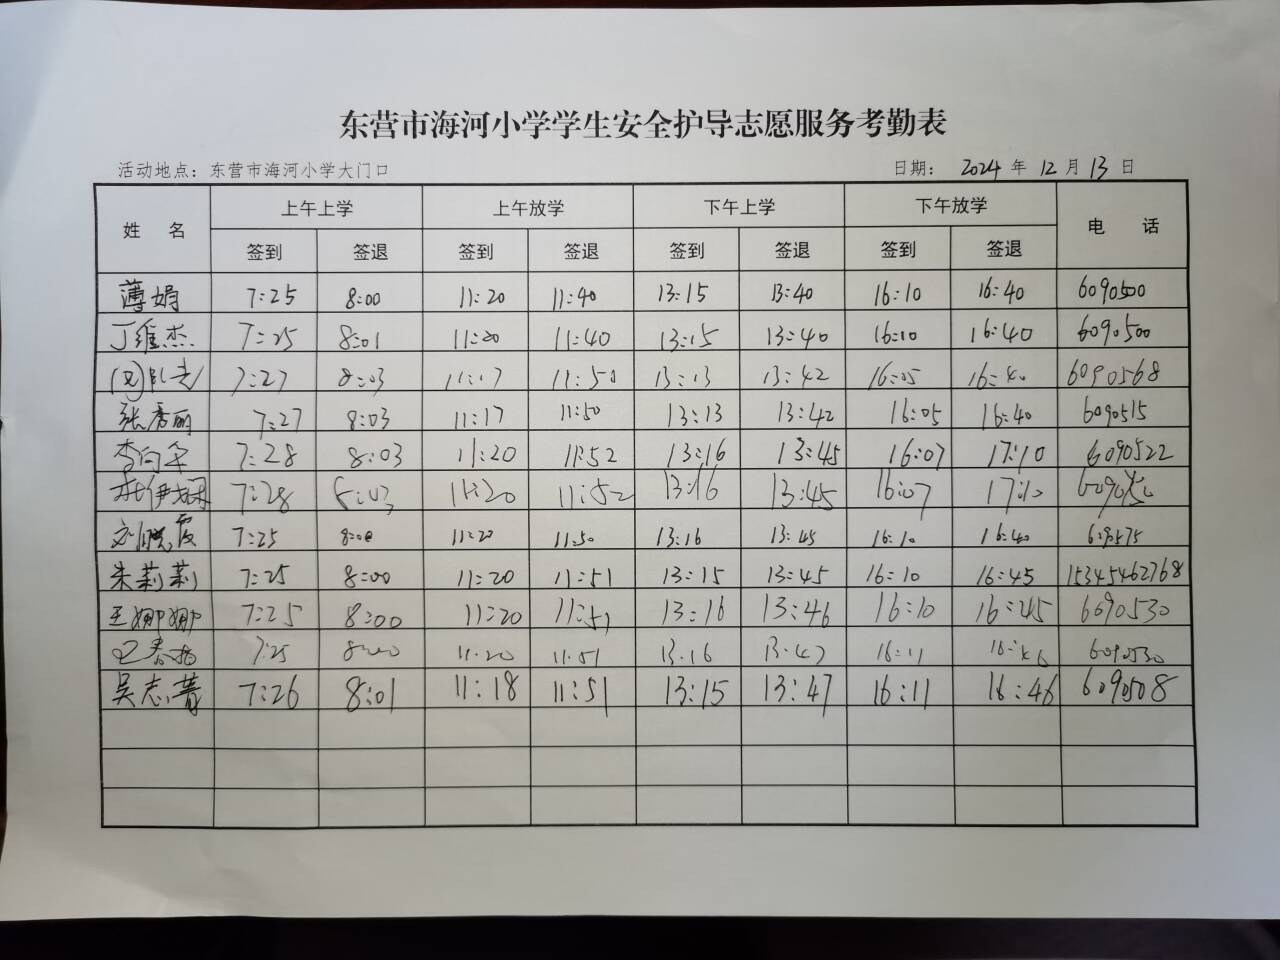 东营市海河小学学生安全护导志愿服务考勤表
活动地点：东营市海河小学大门口 日期： 2024 年 12 月 13 日
姓 名 上午上学 上午放学 下午上学 下午放学 电 话
签到 签退 签到 签退 签到 签退 签到 签退
薄娟 7:25 8:00 11:20 11:40 13:15 13:40 16:10 16:40 6090500
丁维杰 7:25 8:01 11:20 11:40 13:15 13:40 16:10 16:40 6090500
7:27 8:03 11:17 11:50 13:13 13:42 16:05 16:40 6090568
张秀丽 7:27 8:03 11:17 11:50 13:13 13:42 16:05 16:40 6090515
李向华 7:28 8:03 11:20 11:52 13:16 13:45 16:07 17:10 6090522
7:28 8:03 11:20 11:52 13:16 13:45 16:07 17:10
刘晓霞 7:25 8:00 11:20 11:50 13:16 13:45 16:10 16:40 6090575
朱莉莉 7:25 8:00 11:20 11:51 13:15 13:45 16:10 16:45 15345462768
王娜娜 7:25 8:00 11:20 11:51 13:16 13:46 16:10 16:45 6090530
7:25 8:00 11:20 11:51 13:16 13:47 16:11 16:46 6090530
吴志菁 7:26 8:01 11:18 11:51 13:15 13:47 16:11 16:46 6090508